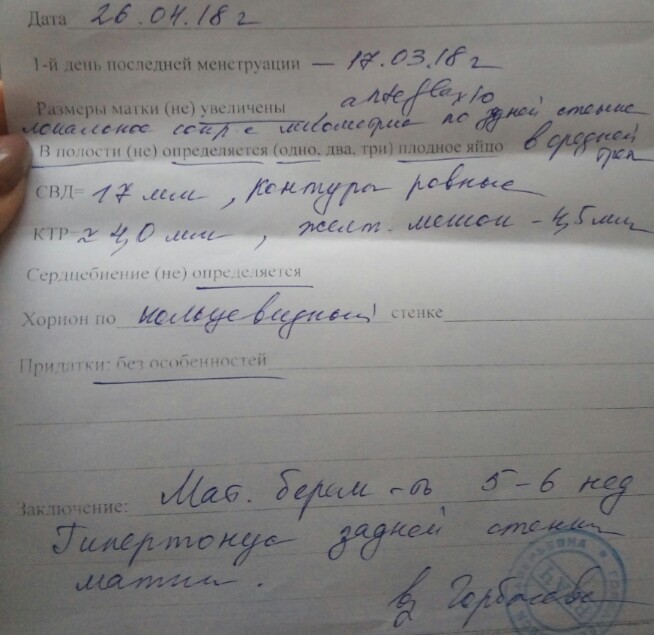 Дата 26.04.18 г
1-й день последней менструации — 17.03.18 г
Размеры матки (не) увеличены, anteflexio
локальное сокр-е миометрия по задней стенке
В полости (не) определяется (одно, два, три) плодное яйцо в средней
СВД= 17 мм, контуры ровные
КТР=≈ 4,0 мм, желт. мешок - 4,5 мм
Сердцебиение (не) определяется
Хорион по кольцевидный стенке
Придатки: без особенностей
Заключение: Мат. берем-ть 5-6 нед
Гипертонус задней стенки
матки.